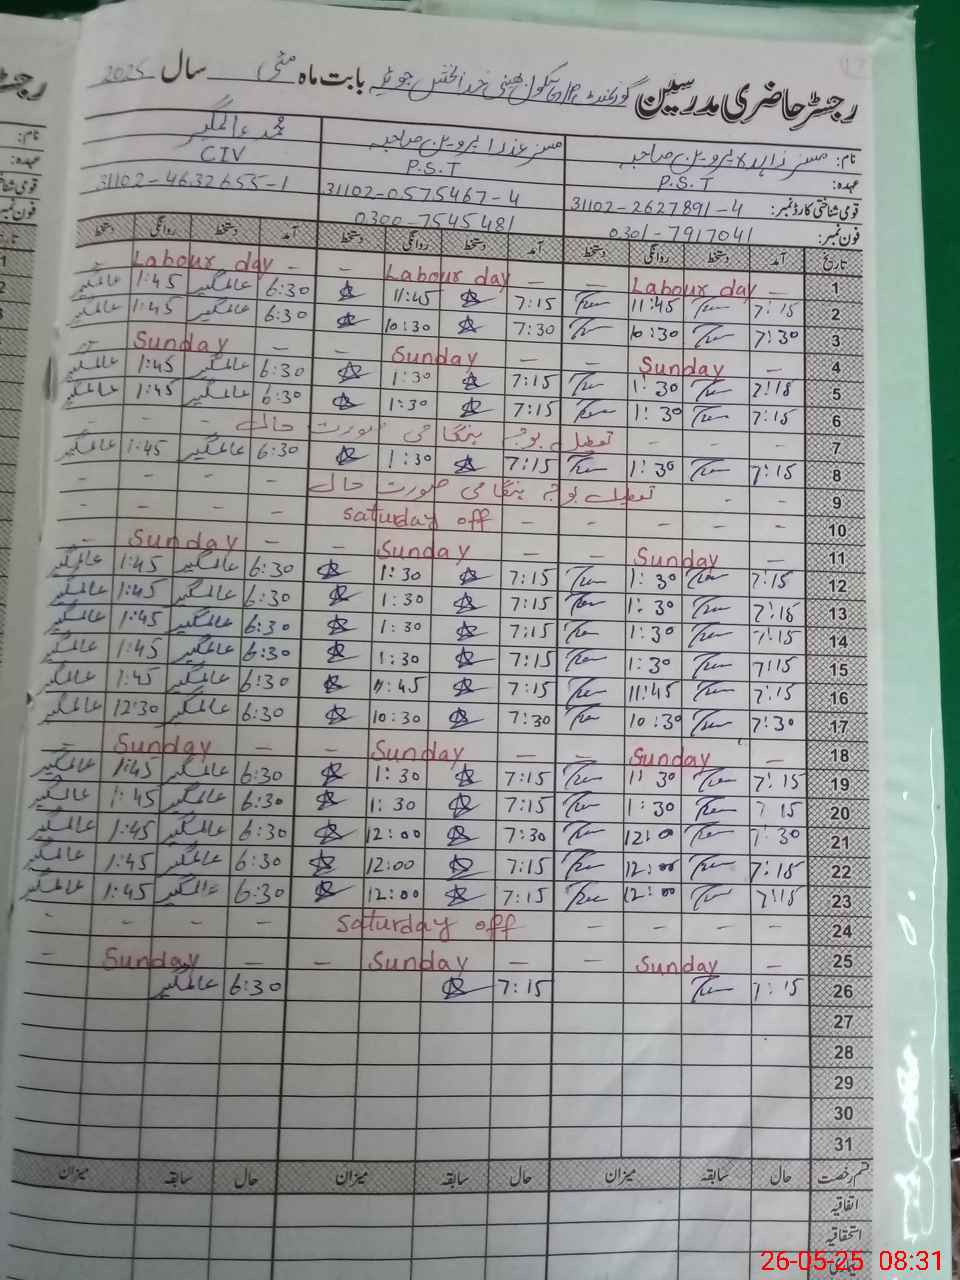 رجسٹر حاضری مدرسین گورنمنٹ پرائمری سکول بھینی خدا بخش جوئیہ بابت ماہ مئی سال 2025
نام: مسز زاہدہ پروین صاحبہ مسز عذرا پروین صاحبہ محمد عالمگیر
عہدہ: P.S.T P.S.T CIV
قومی شناختی کارڈ نمبر: 31102-2627891-4 31102-0575467-4 31102-4632655-1
فون نمبر: 0301-7917041 0300-7545481
تاریخ آمد دستخط روانگی دستخط آمد دستخط روانگی دستخط آمد دستخط روانگی دستخط
1 — Labour day — — Labour day — — Labour day —
2 7:15 11:45 7:15 11:45 6:30 عالمگیر 1:45 عالمگیر
3 7:30 10:30 7:30 10:30 6:30 عالمگیر 1:45 عالمگیر
4 — Sunday — — Sunday — — Sunday —
5 7:15 1:30 7:15 1:30 6:30 عالمگیر 1:45 عالمگیر
6 7:15 1:30 7:15 1:30 6:30 عالمگیر 1:45 عالمگیر
7 - - - تعطیل بوجہ ہنگامی صورت حال - - -
8 7:15 1:30 7:15 1:30 6:30 عالمگیر 1:45 عالمگیر
9 - - تعطیل بوجہ ہنگامی صورت حال - - - -
10 - - - - - saturday off - - - -
11 — Sunday — — Sunday — — Sunday —
12 7:15 1:30 7:15 1:30 6:30 عالمگیر 1:45 عالمگیر
13 7:15 1:30 7:15 1:30 6:30 عالمگیر 1:45 عالمگیر
14 7:15 1:30 7:15 1:30 6:30 عالمگیر 1:45 عالمگیر
15 7:15 1:30 7:15 1:30 6:30 عالمگیر 1:45 عالمگیر
16 7:15 11:45 7:15 11:45 6:30 عالمگیر 1:45 عالمگیر
17 7:30 10:30 7:30 10:30 6:30 عالمگیر 12:30 عالمگیر
18 — Sunday — — Sunday — — Sunday —
19 7:15 1:30 7:15 1:30 6:30 عالمگیر 1:45 عالمگیر
20 7:15 1:30 7:15 1:30 6:30 عالمگیر 1:45 عالمگیر
21 7:30 12:00 7:30 12:00 6:30 عالمگیر 1:45 عالمگیر
22 7:15 12:00 7:15 12:00 6:30 عالمگیر 1:45 عالمگیر
23 7:15 12:00 7:15 12:00 6:30 عالمگیر 1:45 عالمگیر
24 - - - - saturday off - - - -
25 — Sunday — — Sunday — — Sunday —
26 7:15 7:15 6:30 عالمگیر
27
28
29
30
31
قسم رخصت حال سابقہ میزان حال سابقہ میزان حال سابقہ میزان
اتفاقیہ
استحقاقیہ
26-05-25 08:31